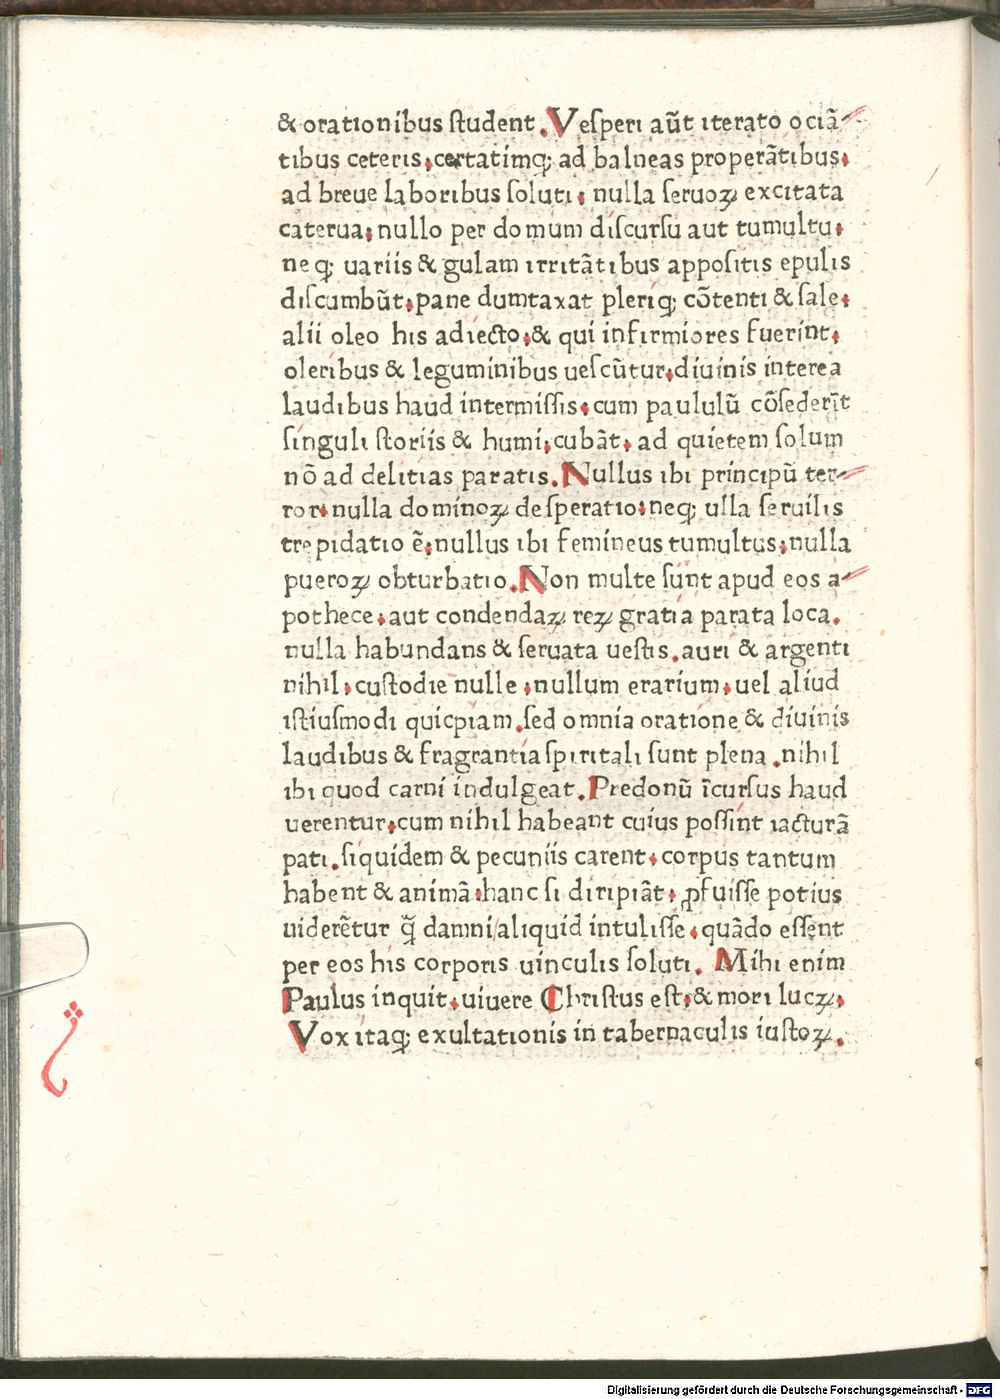 & orationibus ſtudent. Veſperi aūt iterato ociā-
tibus ceteris, certatimq; ad balneas properātibus,
ad breue laboribus ſoluti, nulla ſeruoꝝ excitata
caterua, nullo per domum diſcurſu aut tumultu,
neq; uariis & gulam irritātibus appoſitis epulis
diſcumbūt, pane dumtaxat pleriq; cōtenti & ſale,
alii oleo his adiecto, & qui infirmiores fuerint,
oleribus & leguminibus ueſcūtur, diuinis interea
laudibus haud intermiſſis, cum paululū cōſederīt
ſinguli ſtoriis & humi, cubāt, ad quietem ſolum
nō ad delitias paratis. Nullus ibi principū ter-
ror, nulla dominoꝝ deſperatio, neq; ulla ſeruilis
trepidatio ē, nullus ibi femineus tumultus, nulla
pueroꝝ obturbatio. Non multe ſunt apud eos a-
pothece, aut condendaꝝ reꝝ gratia parata loca.
nulla habundans & ſeruata ueſtis. auri & argenti
nihil, cuſtodie nulle, nullum erarium, uel aliud
iſtiuſmodi quicpiam. ſed omnia oratione & diuinis
laudibus & fragrantia ſpiritali ſunt plena. nihil
ibi quod carni indulgeat. Predonū īcurſus haud
uerentur, cum nihil habeant cuius poſſint iacturā
pati. ſiquidem & pecuniis carent, corpus tantum
habent & animā, hanc ſi diripiāt, ꝓfuiſſe potius
uiderētur q̄ damni aliquid intuliſſe, quādo eſſent
per eos his corporis uinculis ſoluti. Mihi enim
Paulus inquit, uiuere Chriſtus eſt, & mori lucꝝ,
Vox itaq; exultationis in tabernaculis iuſtoꝝ.
Digitalisierung gefördert durch die Deutsche Forschungsgemeinschaft - DFG